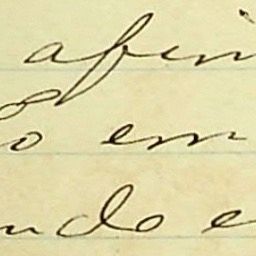 afin
to em
ndo e